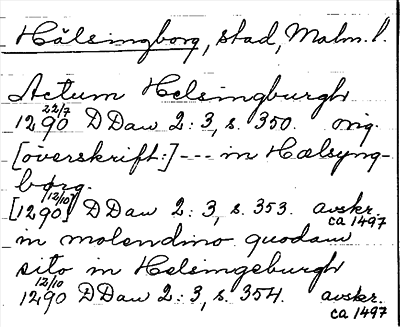 Hälsingborg, stad, Malm. l.
Actum Helsingburgh
1290 22/7 DDan 2:3, s. 350. orig.
[överskrift:] --- in Hælsyng-
borg.
[1290 12/10] DDan 2:3, s. 353. avskr. ca 1497
in molendino quodam
sito in Helsingeburgh
1290 12/10 DDan 2:3, s. 354. avskr. ca 1497